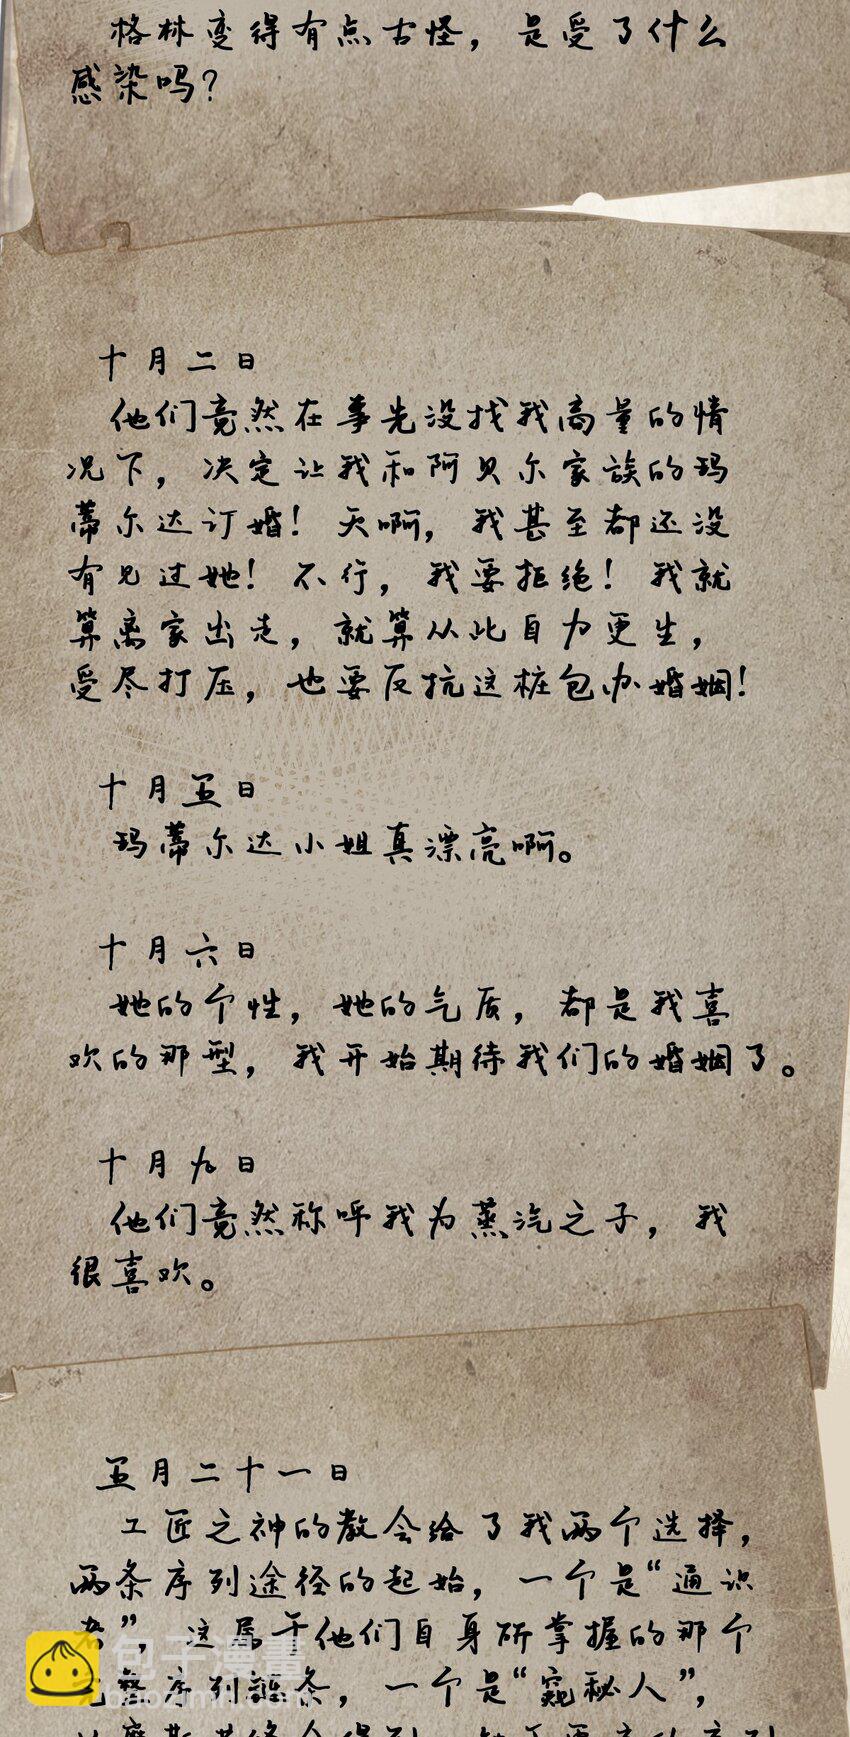 格林变得有点古怪，是受了什么
感染吗？
十月二日
他们竟然在事先没找我商量的情
况下，决定让我和阿贝尔家族的玛
蒂尔达订婚！天啊，我甚至都还没
有见过她！不行，我要拒绝！我就
算离家出走，就算从此自力更生，
受尽打压，也要反抗这桩包办婚姻！
十月五日
玛蒂尔达小姐真漂亮啊。
十月六日
她的个性，她的气质，都是我喜
欢的那型，我开始期待我们的婚姻了。
十月九日
他们竟然称呼我为蒸汽之子，我
很喜欢。
五月二十一日
工匠之神的教会给了我两个选择，
两条序列途径的起始，一个是“通识
者”，这属于他们自身所掌握的那个
序列链条，一个是“窥秘人”，
包子漫畫
baozimh.com